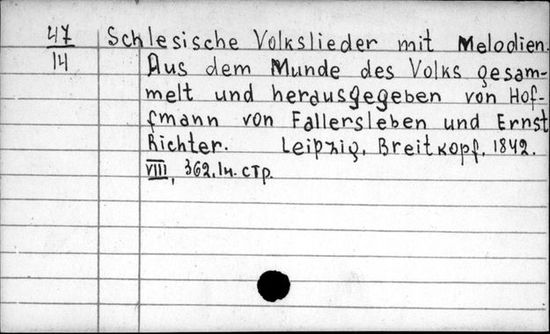 47 Schlesische Volkslieder mit Melodien.
14 Aus dem Munde des Volks gesam-
melt und herausgegeben von Hof-
fmann von Fallersleben und Ernst
Richter. Leipzig, Breitkopf, 1842.
VIII, 362, IV. стр.